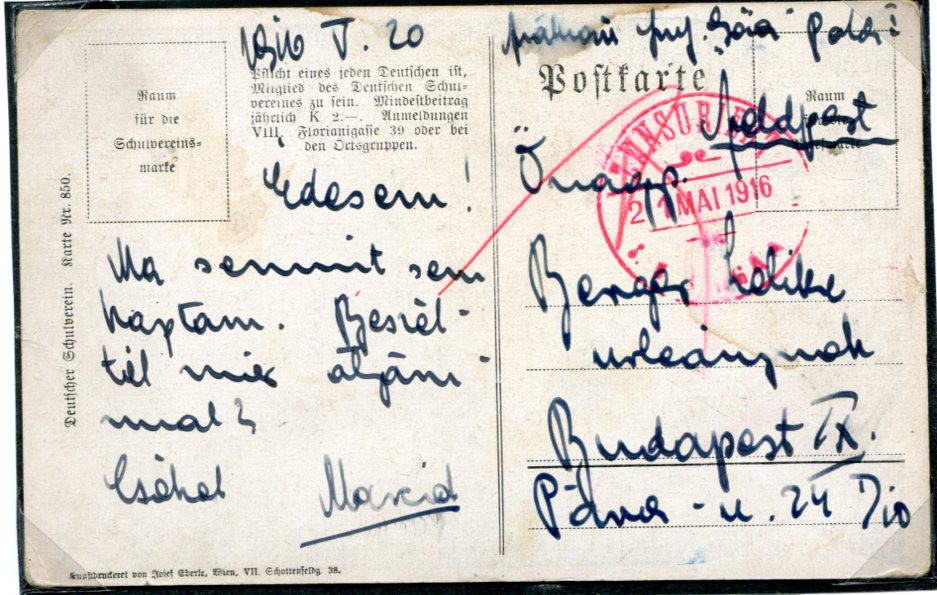 1916 V. 20
Pflicht eines jeden Deutschen ist,
Mitglied des Deutschen Schul-
vereines zu sein. Mindestbeitrag
jährlich K 2.—. Anmeldungen
VIII, Florianigasse 39 oder bei
den Ortsgruppen.
Raum
für die
Schulvereins-
marke
Édesem!
Ma semmit sem
kaptam. Beszél-
tél már
mal?
Csókol
Deutscher Schulverein. Karte Nr. 850.
Kunstdruckerei von Josef Eberle, Wien, VII. Schottenfeldg. 38.
Postkarte
Raum
Feldpost
ZENSURIERT
21 MAI 1916
Önagys.
Berger
urleánynak
Budapest IX.
Páva-u. 24